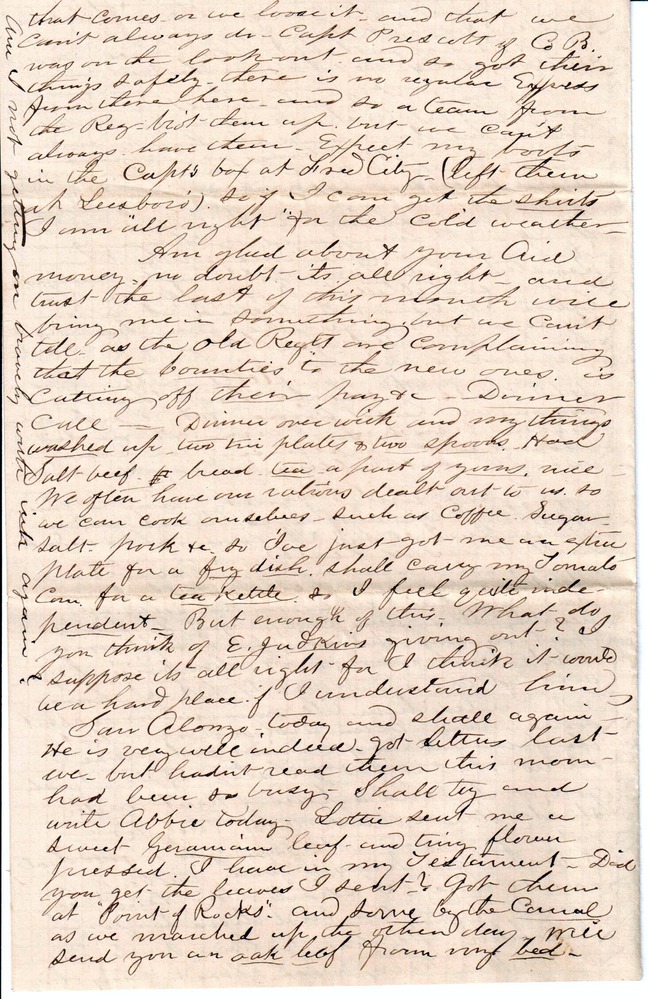 that comes - or we loose it - and that we
can't always do - Capt Prescott of Co B.
was on the look out - and so got their
things safely - there is no regular Express
from there here - and so a team from
the Reg - brot them up - but we can't
always have them - Expect my boots
in the Capt's box at Fred City - (left them
at Leesboro). so if I can get the shirts
I am "all right" for the cold weather -
Am glad about your Aid
money - no doubt its all right - and
trust the last of this month will
bring me in something but we can't
tell as the old Regts are complaining
that the bounties to the new ones is
cutting off their pay &c - Dinner
Call - Dinner over with and my things
washed up - two tin plates & two spoons - Had
Salt beef - bread - tea a part of yours, nice -
We often have our rations dealt out to us, so
we can cook ourselves - such as Coffee. Sugar -
Salt - pork &c. so I've just got me an extra
plate for a fry dish. shall carry my Tomato
Can for a tea kettle. so I feel quite inde-
pendent - But enough of this. What do
you think of E. Judkins giving out? I
suppose its all right - for I think it would
be a hard place if I understand him,
Saw Alonzo today and shall again -
He is very well indeed - got letters last
eve - but hadn't read them this morn -
had been so busy - Shall try and
write Abbie today - Lottie sent me a
sweet Geranium leaf - and tiny flower
pressed. I have in my Testament - Did
you get the leaves I sent? Got them
at "Point of Rocks" - and some by the Canal
as we marched up the other day - will
send you an oak leaf from my bed -
Am I not getting on bravely with ink again?